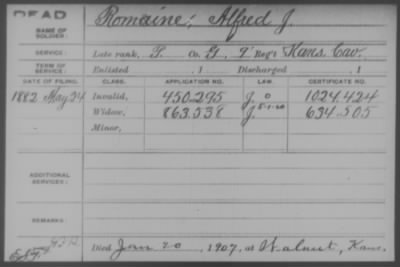 DEAD
NAME OF SOLDIER: Romaine, Alfred J.
SERVICE: Late rank, P. Co. G, 7 Reg't Kans. Cav.
TERM OF SERVICE: Enlisted , 1 Discharged , 1
DATE OF FILING. CLASS. APPLICATION NO. LAW. CERTIFICATE NO.
1882 May 24 Invalid, 450.295 J. 0 1024.424
Widow, 863.538 J. 634.505
Minor,
ADDITIONAL SERVICES:
REMARKS:
Died Jan 20, 1907, at Walnut, Kans.